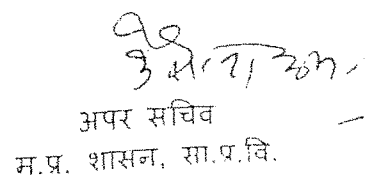 अपर सचिव
म.प्र. शासन, सा.प्र.वि.